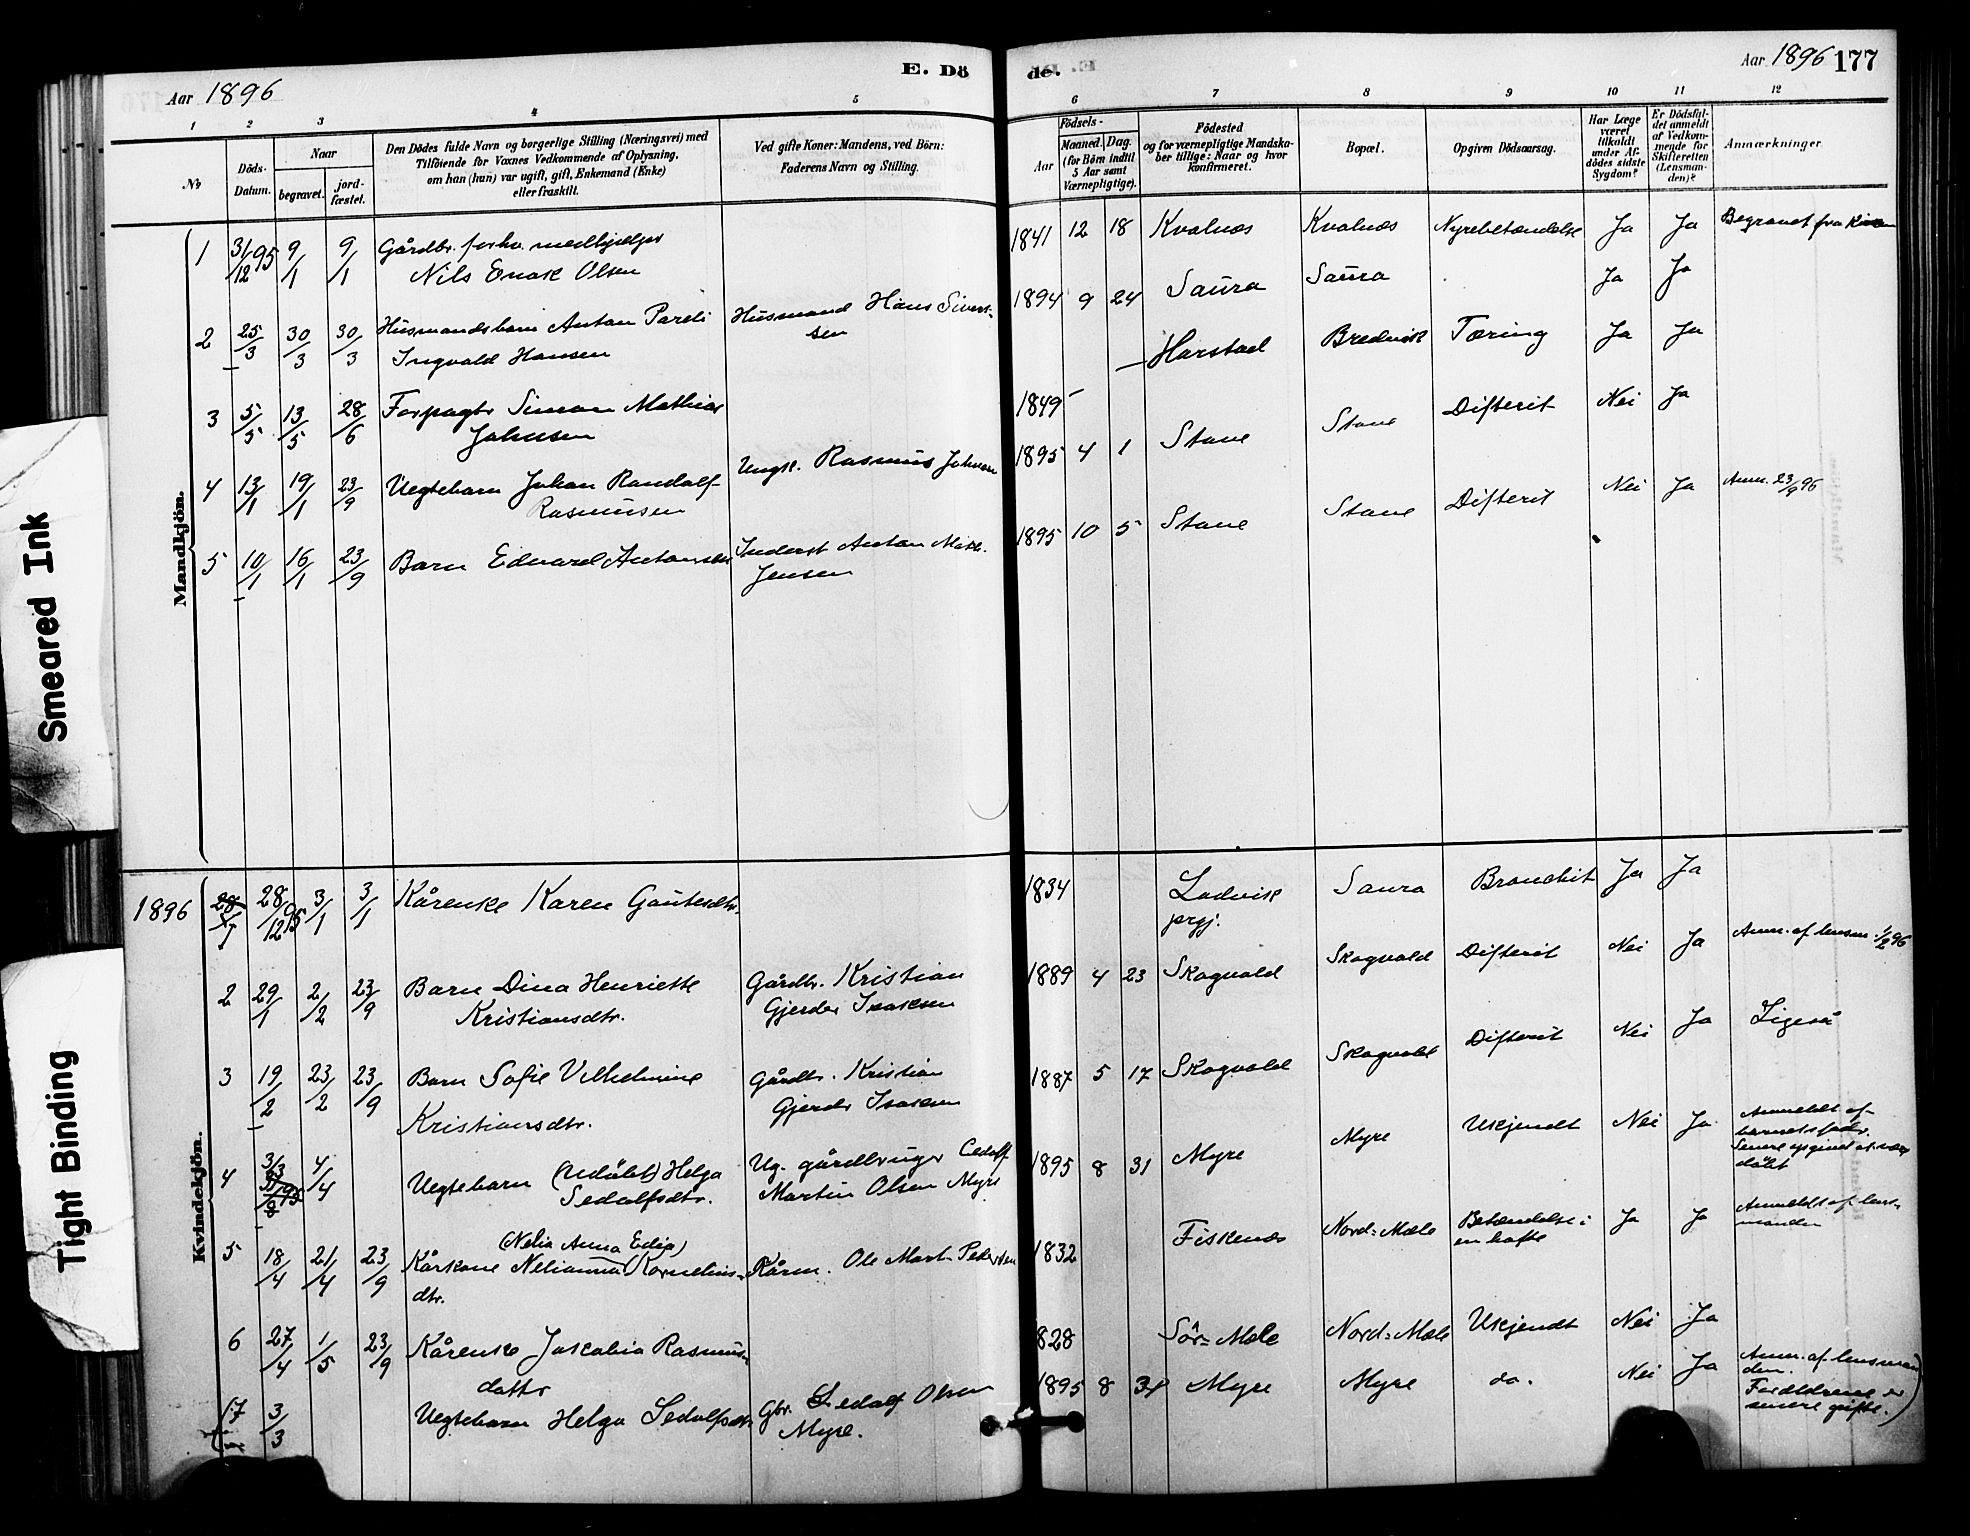 Smeared Ink
Tight Binding
Aar 1896
E. Dö
de.
Aar 1896 177
1 2 3 4 5
6 7 8 9 10 11 12
No
Döds-
Datum.
Naar
begravet.
jord-
fæstet.
Den Dödes fulde Navn og borgerlige Stilling (Næringsvei) med
Tilföiende for Voxnes Vedkommende af Oplysning,
om han (hun) var ugift, gift, Enkemand (Enke)
eller fraskilt.
Ved gifte Koner: Mandens, ved Börn:
Faderens Navn og Stilling.
Födsels-
Aar
Maaned. Dag.
(for Börn indtil
5 Aar samt
Værnepligtige).
Födested
og for værnepligtige Mandska-
ber tillige: Naar og hvor
konfirmeret.
Bopæl.
Opgiven Dödsaarsag.
Har Læge
været
tilkaldt
under Af-
dödes sidste
Sygdom?
Er Dödsfal-
det anmeldt
af Vedkom-
mende for
Skifteretten
(Lensman-
den)?
Anmærkninger.
Mandkjön.
1 31/12 95 9/1 9/1 Gårdbr. forhv. medhjelper
Nils Enok Olsen
1841 12 18 Kvalnæs Kvalnæs Nyrebetændelse Ja Ja Begravet fra
2 25/3 30/3 30/3 Husmandsbarn Anton Pareli
Ingvald Hansen
Husmand Hans Sivert-
sen
1894 9 24 Saura Saura Ja Ja
3 5/5 13/5 28/6 Forpagtr Simon Mathias
Johnsen
1849 – – Harstad Bredvik Tæring Ja Ja
4 13/1 19/1 23/9 Uegtebarn Johan Randolf
Rasmussen
Ungk. Rasmus Johnsen
1895 4 1 Stane Stane Difterit Nei Ja
5 10/1 16/1 23/9 Barn Edvard Antonsen
Inderst Anton Mikk.
Jensen
1895 10 5 Stane Stane Difterit Nei Ja Anm. 23/9 96
Kvindekjön.
1896 1 28/12 95 3/1 3/1 Kårenke Karen Gautesdtr.
1834 Ladvik
prgj.
Saura Bronchit Ja Ja
2 29/1 2/2 23/9 Barn Dina Henriette
Kristiansdtr.
Gårdbr. Kristian
Gjerder Isaksen
1889 4 23 Skogvold Skogvold Difterit Nei Ja Anm. af lensm. 1/2 96
3 19/2 23/2 23/9 Barn Sofie Vilhelmine
Kristiansdtr.
Gårdbr. Kristian
Gjerder Isaksen
1887 5 17 Skogvold Skogvold Difterit Nei Ja Ligeså
4 3/3 4/4 Uegtebarn (udöbt) Helga
Sedolfsdtr.
Ug. gårdbruger Cedolf
Martin Olsen Myre
1895 8 31 Myre Myre Ukjendt Nei Ja Anmeldt af
barnets fader.
Senere opgivet at være
döbt
5 18/4 21/4 23/9 Kårkone Nelianna Kornelius-
(Nelia Anna Edia)
dtr.
Kårm. Ole Mart. Pedersen
1832 Fiskenæs Nord-Mæle Betændelse i
en hofte
Ja Ja Anmeldt af lens-
manden
6 27/4 1/5 23/9 Kårenke Jakobia Rasmus-
dattr
828 Sör-Mæle Nord-Mæle Ukjendt Nei Ja
(7 3/3 Uegtebarn Helga Sedolfsdtr.
Gbr. Sedolf Olsen
Myre.
1895 8 31 Myre Myre do. Nei Ja Anm. af lensman
den.
Forældrene er
senere gifte.)